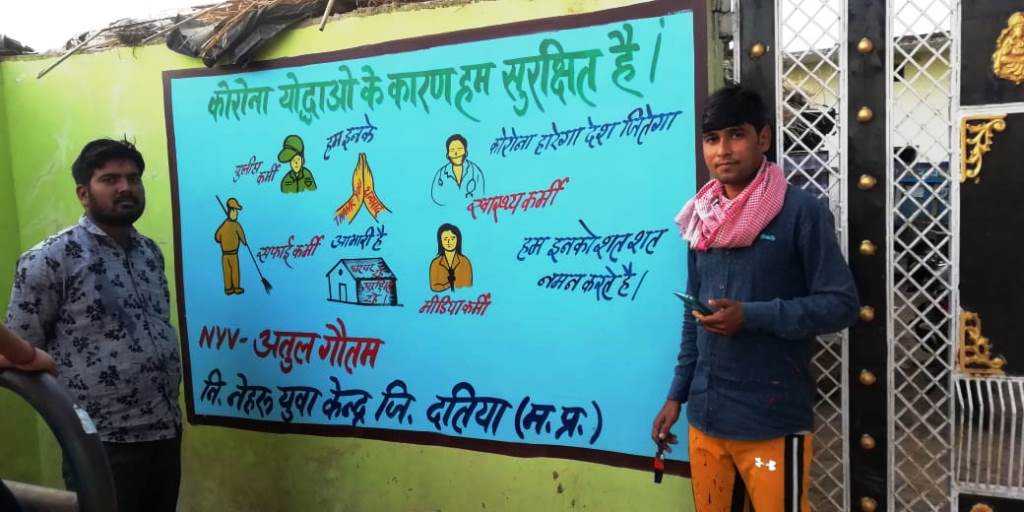 कोरोना योद्धाओ के कारण हम सुरक्षित है।
हम इनके
कोरोना हारेगा देश जितेगा
पुलीस
कर्मी
स्वास्थ्य कर्मी
सफाई कर्मी
आभारी है
हम इनको शत शत
नमन करते है।
मीडिया कर्मी
NYV- अतुल गौतम
नि. नेहरू युवा केन्द्र जि. दतिया (म.प्र.)